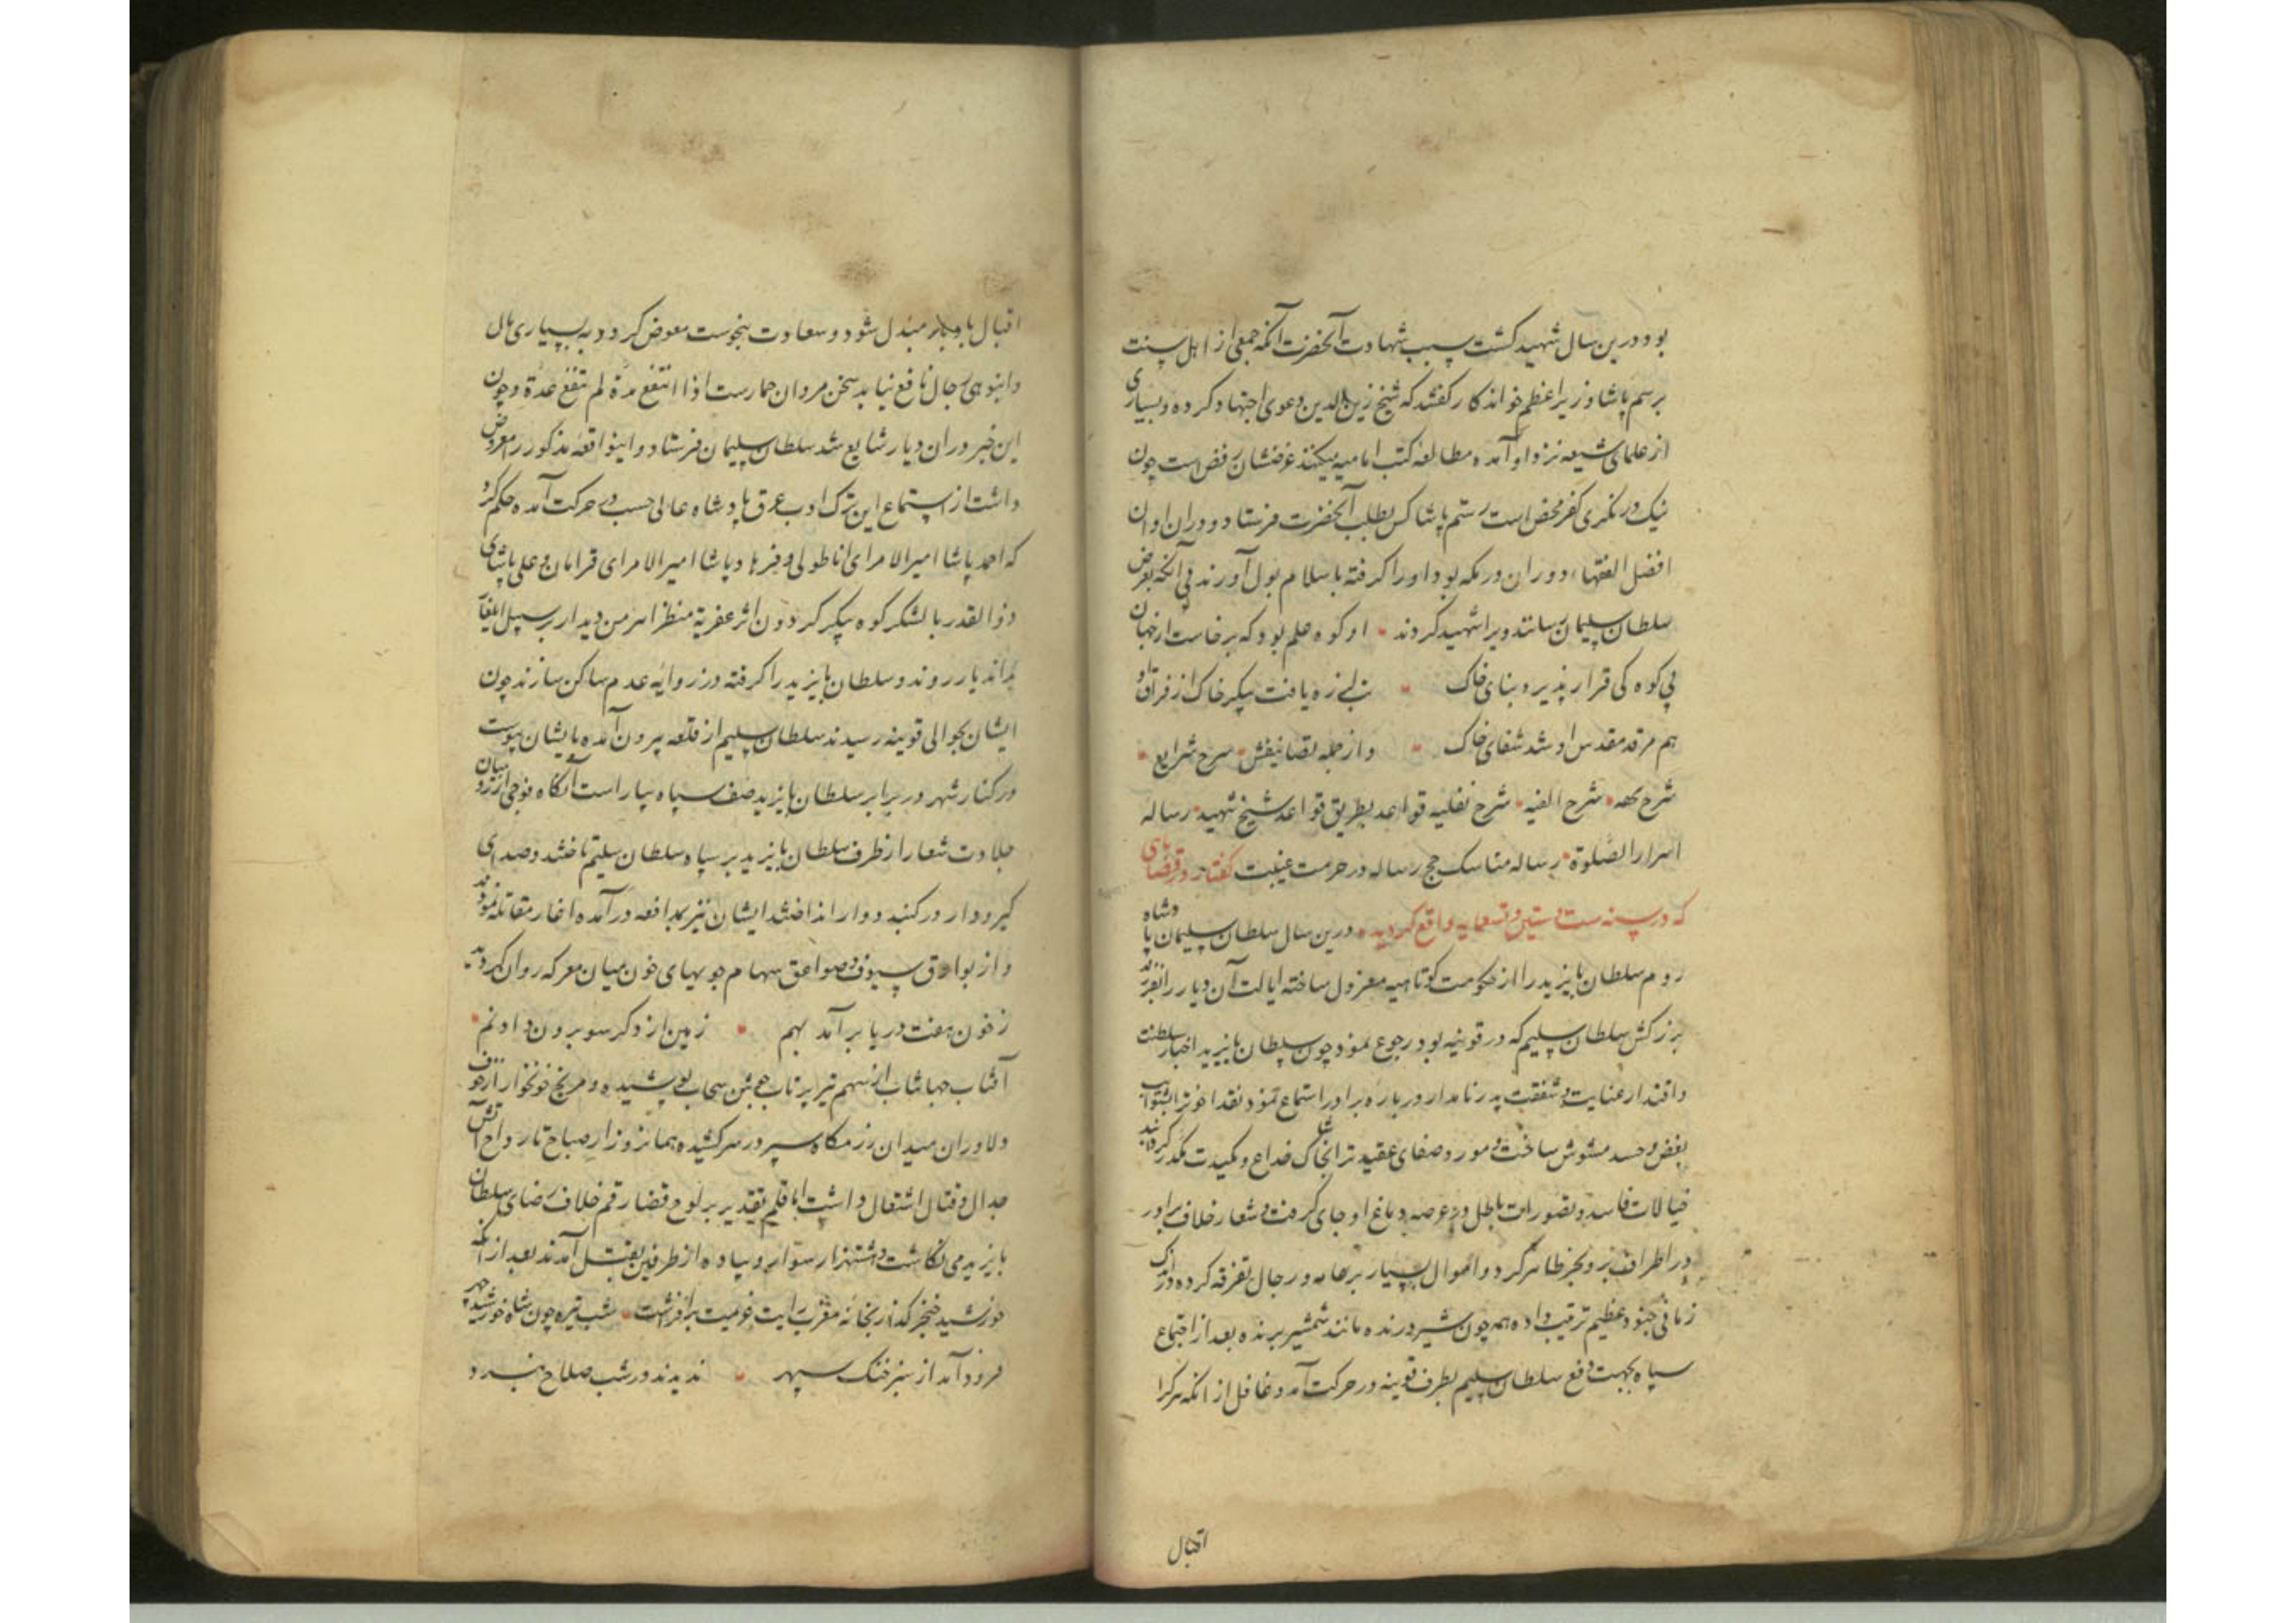 بود درین سال شهید کشت سبب شهادت آنحضرت آنکه جمعی از اهل سنت
برستم پاشا وزیر اعظم خواندکار کفتند که شیخ زین الدین دعوی اجتهاد کرده و بسیاری
از علمای شیعه نزد او آمده مطالعه کتب امامیه میکنند غرضشان رفض است چون
نیک در نکری کفر محض است رستم پاشا کس بطلب آنحضرت فرستاد و دران اوان
افضل الفقهاء دوران در مکه بود او را کرفته باسلام بول آوردند بی آنکه بعرض
سلطان سلیمان رسانند ویرا شهید کردند او کوه علم بود که برخاست از جهان
بی کوه کی قرار پذیرد بنای خاک زلزله یافت پیکر خاک از فراق او
هم مرقد مقدس او شد شفای خاک و از جمله تصانیفش شرح شرایع
شرح لمعه شرح الفیه شرح نفلیه قواعد بطریق قواعد شیخ شهید رساله
اسرار الصلوة رساله مناسک حج رساله در حرمت غیبت کفتار در قضایای
که در سنه ست و ستین و تسعمایه واقع کردیده درین سال سلطان سلیمان پادشاه
روم سلطان بایزید را از حکومت کوتاهیه معزول ساخته ایالت آن دیار را بفرزند
بزرکش سلطان سلیم که در قونیه بود رجوع نمود چون سلطان بایزید اخبار سلطنت
و اقتدار عنایت و شفقت پدر نامدار در باره برادر استماع نمود نقد اخوت را بشوایب
بغض و حسد مشوش ساخت و مورد صفای عقیدت را بخاشاک خداع و مکیدت مکدر کردانید
خیالات فاسد و تصورات باطل در عرصه دماغ او جای کرفت و شعار خلاف برادر
در اطراف بر و بحر ظاهر کرد و اموال بسیار بر رجال تفرقه کرده در اندک
زمانی جنود عظیم ترتیب داده همه چون شیر درنده مانند شمشیر برنده بعد از اجتماع
سپاه بجهت دفع سلطان سلیم بطرف قونیه در حرکت آمد و غافل از انکه هر کرا
اقبال
اقبال بادبار مبدل شود و سعادت بنحوست معوض کردد به بسیاری مال
و انبوهی رجال نافع نیاید سخن مردان حمارست اذا انتفع مدة لم تنفع عدة و چون
این خبر دران دیار شایع شد سلطان سلیمان فرستاد و اینواقعه مذکور را معروض
داشت از استماع این ترک ادب عرق پادشاه عالی حسب در حرکت آمده حکم کرد
که احمد پاشا امیر الامرای اناطولی و فرهاد پاشا امیر الامرای قرامان و علی پاشای
ذوالقدر با لشکر کوه پیکر کردون اثر عفریة منظر اهرمن دیدار بر سبیل ایلغار
بداندیار روند و سلطان بایزید را کرفته در زوایه عدم ساکن سازند چون
ایشان بحوالی قونیه رسیدند سلطان سلیم از قلعه بیرون آمده بایشان پیوست
در کنار شهر در برابر سلطان بایزید صف سپاه بیاراست آنکاه فوجی از مبارزان
جلادت شعار از طرف سلطان بایزید بر سپاه سلطان سلیم تاختند و صدای
کیر و دار در کنبد دوار انداختند ایشان نیز بمدافعه در آمده اغاز مقاتله نمودند
و از بوارق سیوف و صواعق سهام جویهای خون میان معرکه روان کردید
ز خون هفت دریا بر آمد بهم زمین از دکر سو برون داد نم
آفتاب جهانتاب از سهم تیر پرتاب جوشن سحاب پوشیده و مریخ خونخوار از خوف
دلاوران میدان رزمکاه سپر در سر کشیده همانروز از صباح تا رواح آتش
جدال و قتال اشتعال داشت اما قلم تقدیر بر لوح قضا رقم خلاف رضای سلطان
بایزید می نکاشت و هشتهزار سوار و پیاده از طرفین بقتل آمدند بعد از آنکه
خورشید خنجر کذار بخانه مغرب رایت عزیمت برافراشت شب تیره چون شاه خورشید چهر
فرود آمد از سبز خنک سپهر ندیدند در شب صلاح نبرد